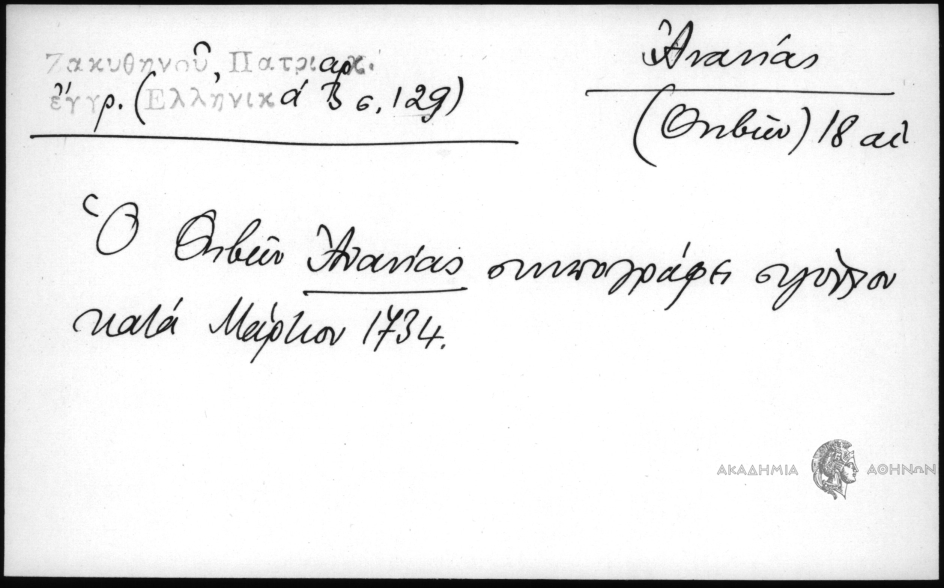 Ζακυθηνοῦ, Πατριαρχ.
ἔγγρ. (Ἑλληνικά 3 σ. 129)
Ἀνανίας
(Θηβῶν) 18 αἰ
Ὁ Θηβῶν Ἀνανίας συνυπογράφει σιγίλλιον
κατά Μάρτιον 1734.
ΑΚΑΔΗΜΙΑ ΑΘΗΝΩΝ